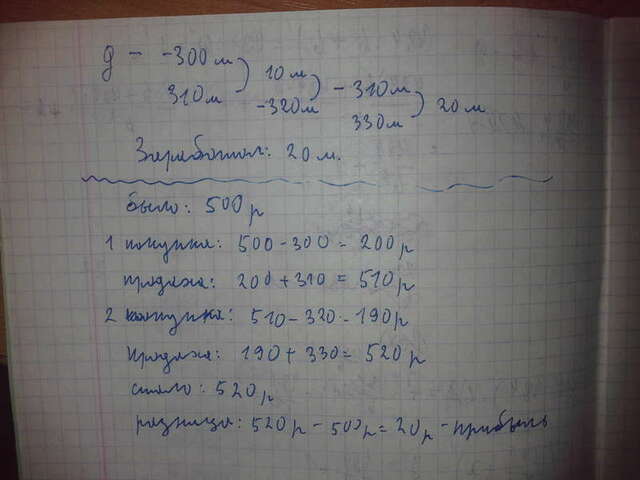 д - -300 м
310 м ) 10 м
-320 м ) -310 м
330 м ) 20 м
Заработал: 20 м.
было: 500 р
1 покупка: 500 - 300 = 200 р
продажа: 200 + 310 = 510 р
2 покупка: 510 - 320 - 190 р
продажа: 190 + 330 = 520 р
стало: 520 р
разница: 520 р - 500 р = 20 р - прибыль